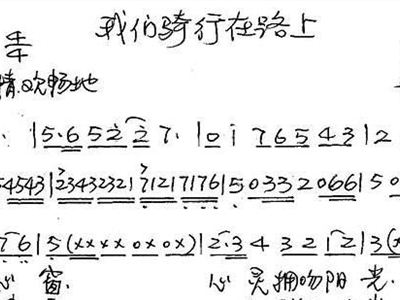 我们骑行在路上
4/4
情 欢畅地
|5·6 5 2 2 7· |0 i 7 6 5 4 3|2
54543|23432321 71217176|5033 2066|50
76|5(xxxx0x0x)|2·3 4 3 2 12|3(x
心 窗. 心 灵拥吻阳 光.